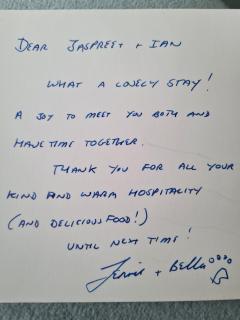 DEAR JASPREET + IAN
WHAT A LOVELY STAY!
A JOY TO MEET YOU BOTH AND
HAVE TIME TOGETHER.
THANK YOU FOR ALL YOUR
KIND AND WARM HOSPITALITY
(AND DELICIOUS FOOD!)
UNTIL NEXT TIME!
+ Bella